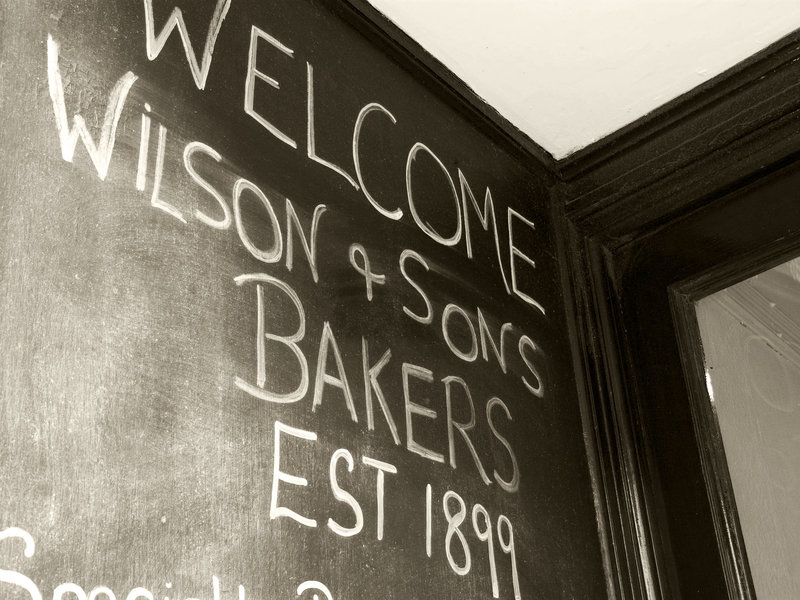 WELCOME
WILSON & SONS
BAKERS
EST 1899